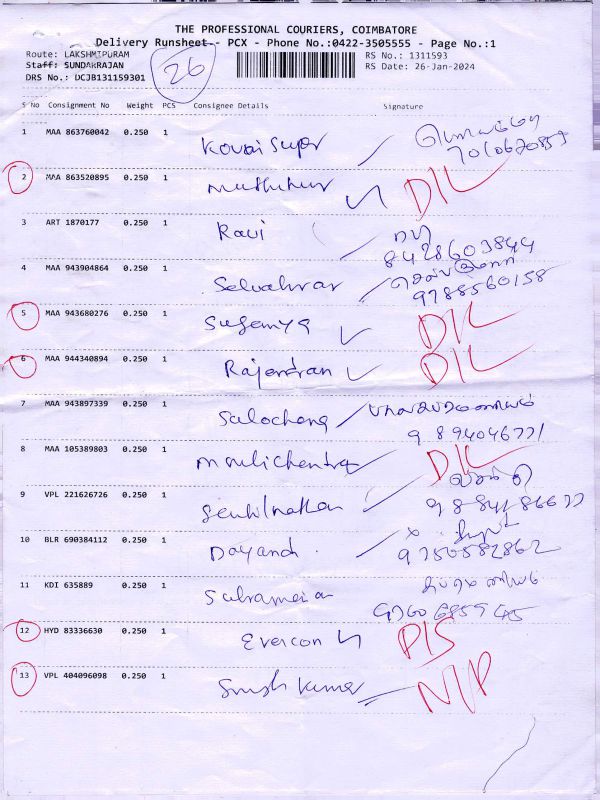 THE PROFESSIONAL COURIERS, COIMBATORE
Delivery Runsheet-- PCX - Phone No.:0422-3505555 - Page No.:1
Route: LAKSHMIPURAM
Staff: SUNDARRAJAN
DRS No.: DCJB131159301
26
RS No.: 1311593
RS Date: 26-Jan-2024
S No Consignment No Weight PCS Consignee Details Signature
1 MAA 863760042 0.250 1 Kovai Super
7010670859
2 MAA 863520895 0.250 1 D/L
3 ART 1870177 0.250 1 Ravi
8428603844
4 MAA 943904864 0.250 1
9788560158
5 MAA 943680276 0.250 1 Sugamya D/L
6 MAA 944340894 0.250 1 Rajendran D/L
7 MAA 943897339 0.250 1 Salochana
8 MAA 105389803 0.250 1 Moulichandra D/L
9 VPL 221626726 0.250 1 Senthilnathan
10 BLR 690384112 0.250 1 Dayanch
9750582862
11 KDI 635889 0.250 1
12 HYD 83336630 0.250 1 Evercon P/S
13 VPL 404096098 0.250 1 Suresh Kumar N/P